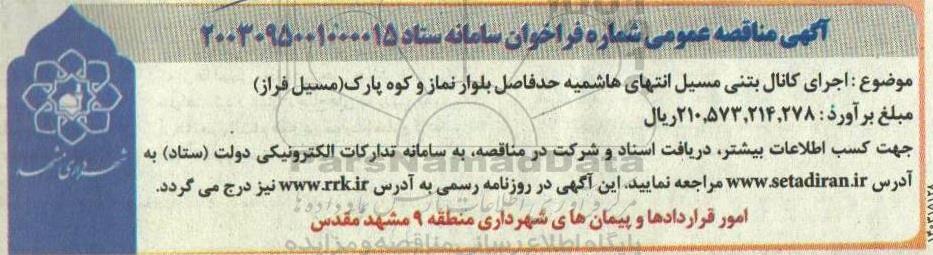 آگهی مناقصه عمومی شماره فراخوان سامانه ستاد ۲۰۰۳۰۹۵۰۰۱۰۰۰۰۱۵
موضوع : اجرای کانال بتنی مسیل انتهای هاشمیه حدفاصل بلوار نماز و کوه پارک(مسیل فراز)
مبلغ برآورد : ۲۱۰,۵۷۳,۲۱۴,۲۷۸ریال
جهت کسب اطلاعات بیشتر، دریافت اسناد و شرکت در مناقصه، به سامانه تدارکات الکترونیکی دولت (ستاد) به
آدرس www.setadiran.ir مراجعه نمایید. این آگهی در روزنامه رسمی به آدرس www.rrk.ir نیز درج می گردد.
امور قراردادها و پیمان های شهرداری منطقه ۹ مشهد مقدس
شهرداری مشهد
ParsNamadData
پایگاه اطلاع رسانی مناقصه و مزایده